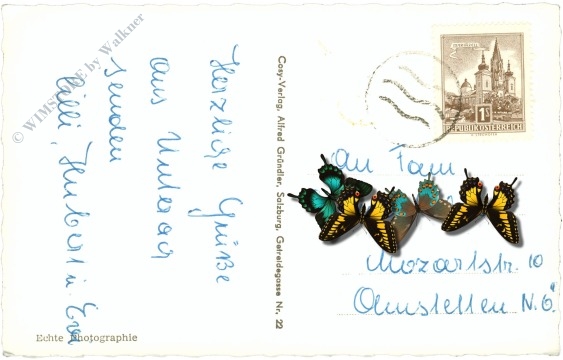 © WIMSTORE by Walkner
Herzliche Grüße
aus Unterach
senden
Lilli, Hubert u. Eva
Echte Photographie
Cosy-Verlag, Alfred Gründler, Salzburg, Getreidegasse Nr. 22
1S
REPUBLIK ÖSTERREICH
An Fam
Mozartstr. 10
Amstetten N.Ö.